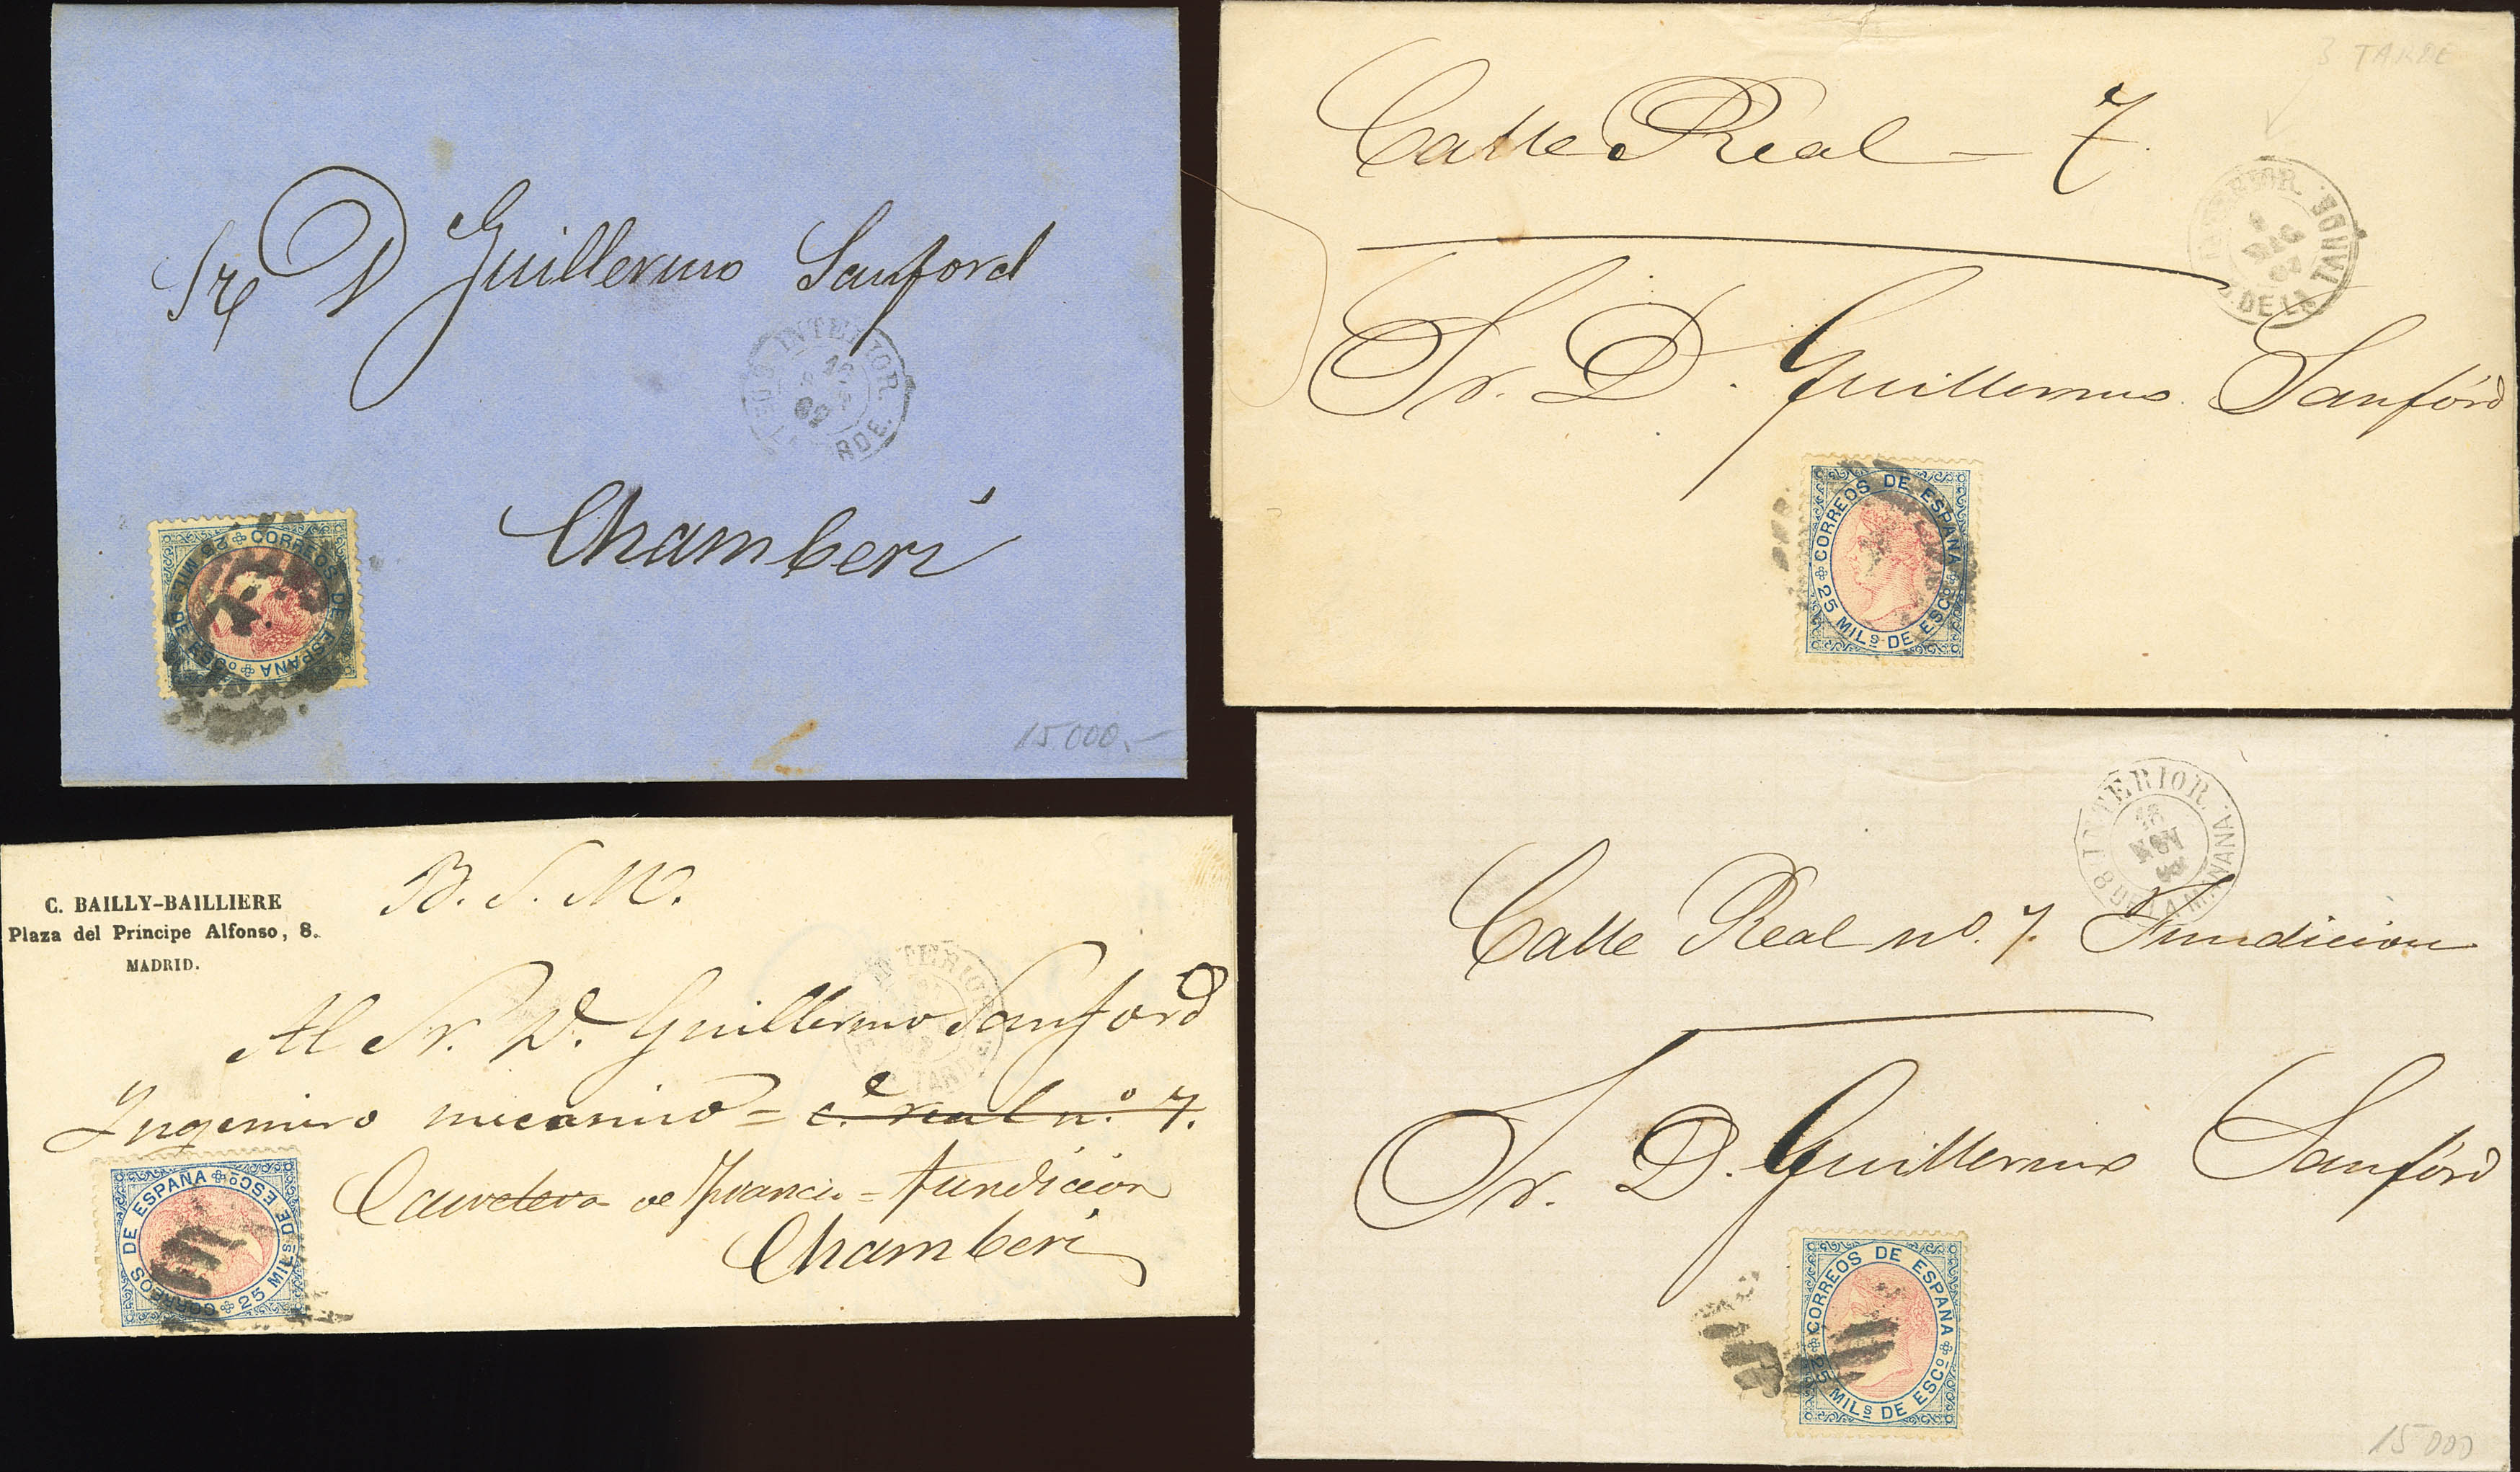 Sr D Guillermo Sanford
INTERIOR.
Chamberí
CORREOS DE ESPAÑA
25 MILS DE ESCO
15.000.-
3 TARDE
Calle Real - 7.
INTERIOR.
DE LA TARDE.
DIC
Sr. D. Guillermo Sanfórd
CORREOS DE ESPAÑA
25 MILS DE ESCO
C. BAILLY-BAILLIERE
Plaza del Príncipe Alfonso, 8.
MADRID.
B. S. M.
INTERIOR
TARDE
Al Sr. D. Guillermo Sanford
Ingeniero mecanico = c. real n.º 7.
Carretera de Francia = fundicion
Chamberi
CORREOS DE ESPAÑA
25 MILS DE ESCO
INTERIOR.
8 DE LA MAÑANA.
NOV
Calle Real nº. 7. Fundicion
Sr. D. Guillermo Sanfórd
CORREOS DE ESPAÑA
25 MILS DE ESCO
15 000